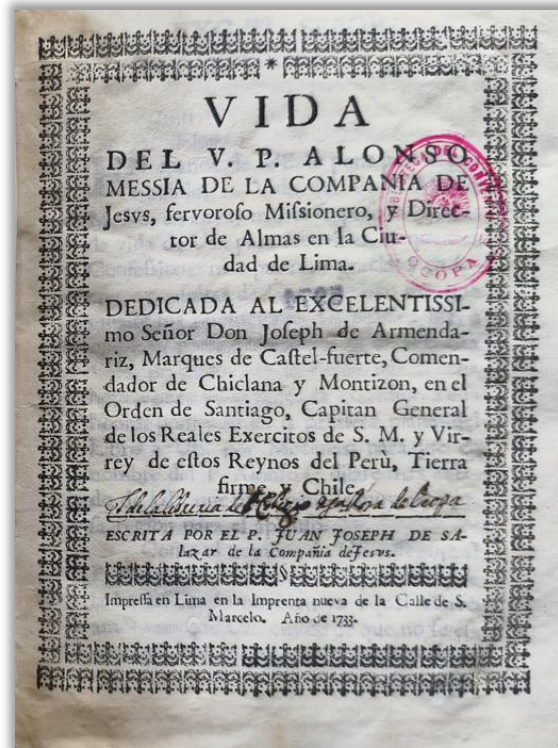 VIDA
DEL V. P. ALONSO
MESSIA DE LA COMPAÑIA DE
Jesvs, fervoroſo Miſsionero, y Direc-
tor de Almas en la Ciu-
dad de Lima.
DEDICADA AL EXCELENTISSI-
mo Señor Don Joſeph de Armenda-
riz, Marques de Caſtel-fuerte, Comen-
dador de Chiclana y Montizon, en el
Orden de Santiago, Capitan General
de los Reales Exercitos de S. M. y Vir-
rey de eſtos Reynos del Perù, Tierra
firme y Chile.
de la libreria de Ocopa
ESCRITA POR EL P. JUAN JOSEPH DE SA-
lazar de la Compañia de Jesvs.
Impreſſa en Lima en la Imprenta nueva de la Calle de S.
Marcelo. Año de 1733.
BIBLIOTECA DEL CONVENTO
OCOPA